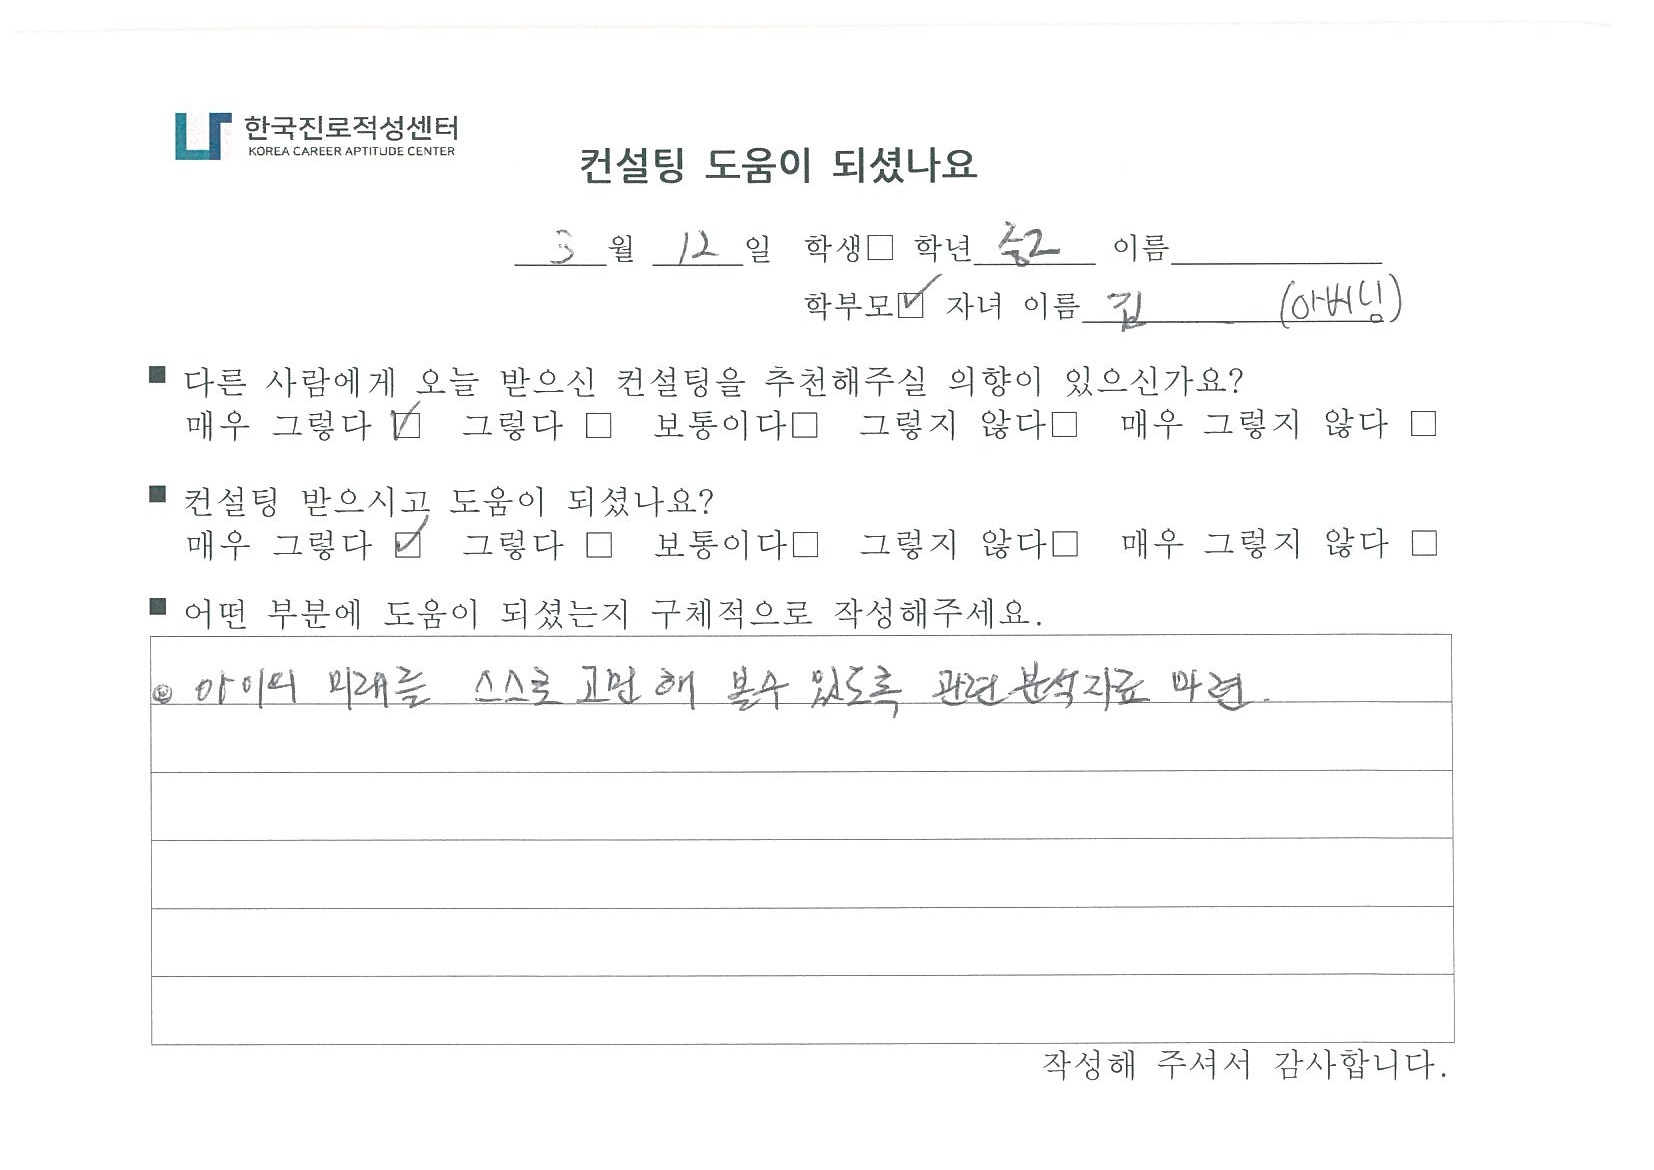 한국진로적성센터
KOREA CAREER APTITUDE CENTER
컨설팅 도움이 되셨나요
3월 12일 학생□ 학년 중2 이름
학부모☑ 자녀 이름 김 (아버님)
■ 다른 사람에게 오늘 받으신 컨설팅을 추천해주실 의향이 있으신가요?
매우 그렇다 ☑ 그렇다 □ 보통이다□ 그렇지 않다□ 매우 그렇지 않다 □
■ 컨설팅 받으시고 도움이 되셨나요?
매우 그렇다 ☑ 그렇다 □ 보통이다□ 그렇지 않다□ 매우 그렇지 않다 □
■ 어떤 부분에 도움이 되셨는지 구체적으로 작성해주세요.
◎ 아이의 미래를 스스로 고민해 볼수 있도록 관련분석자료 마련.
작성해 주셔서 감사합니다.